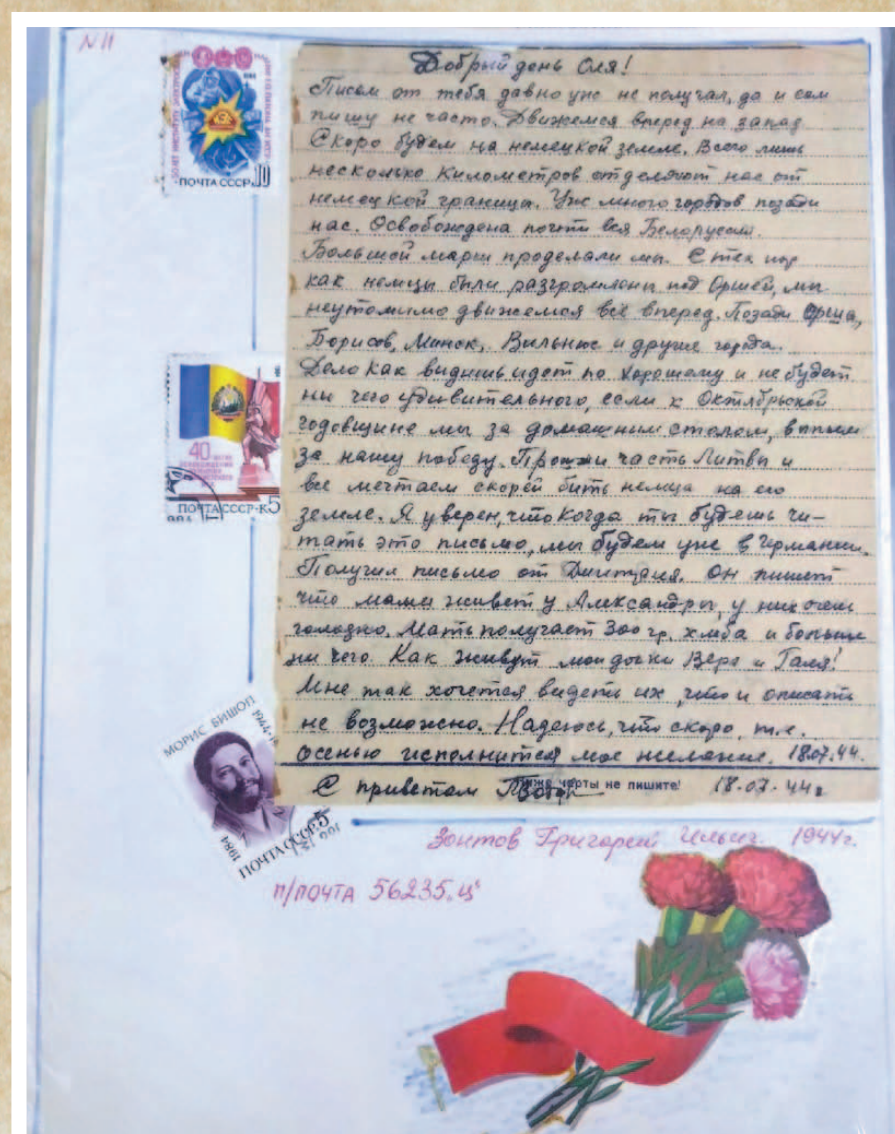 № 11
1984
ПОЧТА СССР 10
Добрый день Оля!
Писем от тебя давно уже не получал, да и сам
пишу не часто. Движемся вперед на запад
Скоро будем на немецкой земле. Всего лишь
несколько километров отделяют нас от
немецкой граница. Уже много городов позади
нас. Освобождена почти вся Белоруссия.
Большой марш проделали мы. С тех пор
как немцы были разгромлены под Оршей, мы
неутомимо движемся всё вперед. Позади Орша,
Борисов, Минск, Вильнюс и другие города.
Дело как видишь идет по хорошему и не будет
ни чего удивительного, если к Октябрьской
годовщине мы за домашним столом, выпьем
за нашу победу. Прошли часть Литвы и
все мечтаем скорей бить немца на его
земле. Я уверен, что когда ты будешь чи-
тать это письмо, мы будем уже в Германии.
Получил письмо от Дмитрия. Он пишет
что мама живет у Александры, у них очень
голодно. Мать получает 300 гр. хлеба и больше
ни чего. Как живут мои дочки Вера и Галя!
Мне так хочется видеть их, что и описать
не возможно. Надеюсь, что скоро, т.е.
осенью исполнится мое желание. 18.07.44.
С приветом
черты не пишите!
18.07.44г
40
ПОЧТА СССР·К5
МОРИС БИШОП
1984
ПОЧТА СССР 5
Зонтов Григорий Ильич. 1944г.
п/ПОЧТА 56235."Ц"